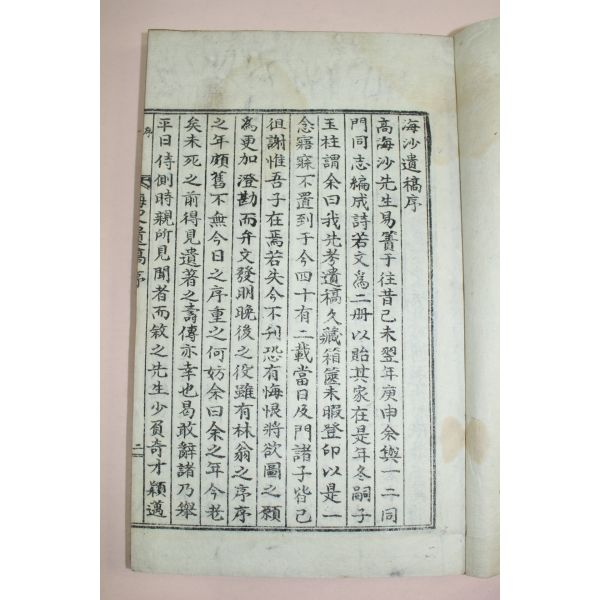 海沙遺稿序
高海沙先生易簀于往昔己未翌年庚申余與一二同
門同志編成詩若文爲二册以貽其家在是年冬嗣子
玉柱謂余曰我先考遺稿久藏箱篋未暇登印以是一
念寤寐不置到于今四十有二載當日及門諸子皆已
徂謝惟吾子在焉若失今不刊恐有悔恨將欲圖之願
爲更加澄勘而弁文發明晩後之役雖有林翁之序序
之年頗舊不無今日之序重之何妨余曰余之年今老
矣未死之前得見遺著之壽傳亦幸也曷敢辭諸乃擧
平日侍側時親所見聞者而敘之先生少負奇才穎邁
序
海沙遺稿序
二